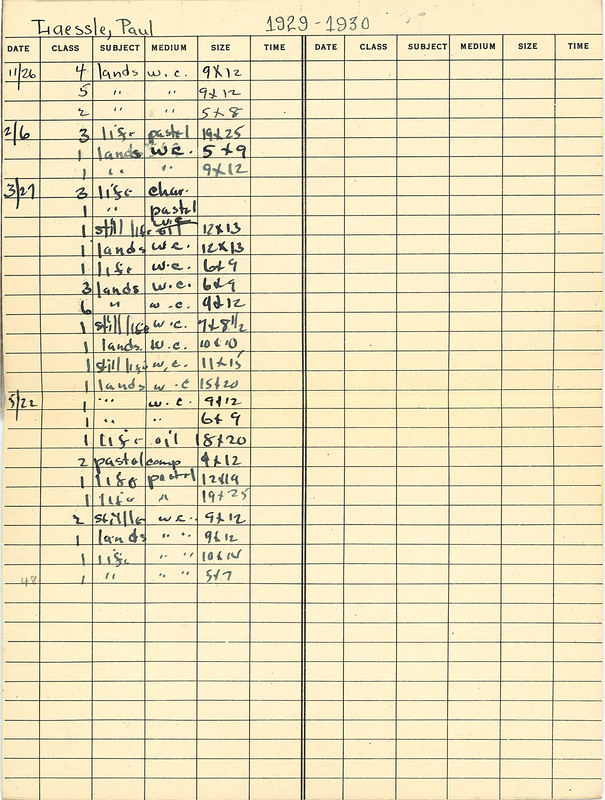 Laessle, Paul 1929-1930
DATE CLASS SUBJECT MEDIUM SIZE TIME DATE CLASS SUBJECT MEDIUM SIZE TIME
11/26 4 lands w.c. 9x12
5 " " 9x12
2 " " 5x8
2/6 3 life pastel 19x25
1 lands w.c. 5x9
1 " " 9x12
3/27 3 life char.
1 " pastel
w.c.
1 still life oil 12x13
1 lands w.c. 12x13
1 life w.c. 6x9
3 lands w.c. 6x9
6 " w.c. 9x12
1 still life w.c. 7x8½
1 lands. w.c. 10x10
1 still life w.c. 11x15
1 lands w.c 15x20
5/22 1 " " w.c. 9x12
1 " " 6x9
1 life oil 18x20
2 pastel comp 9x12
1 life pastel 12x19
1 life " 19x25
2 still life w.c. 9x12
1 lands " " 9x12
1 life " " 10x14
48 1 " " " 5x7